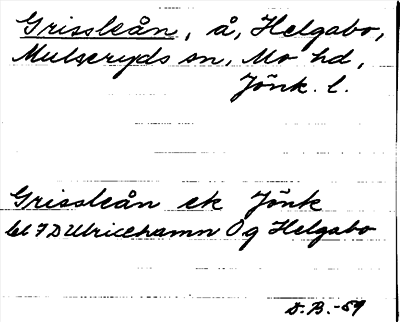 Grissleån, å, Helgabo,
Mulseryds sn, Mo hd,
Jönk. l.
Grissleån ek Jönk
bl 7D Ulricehamn Og Helgabo
D. B. -59